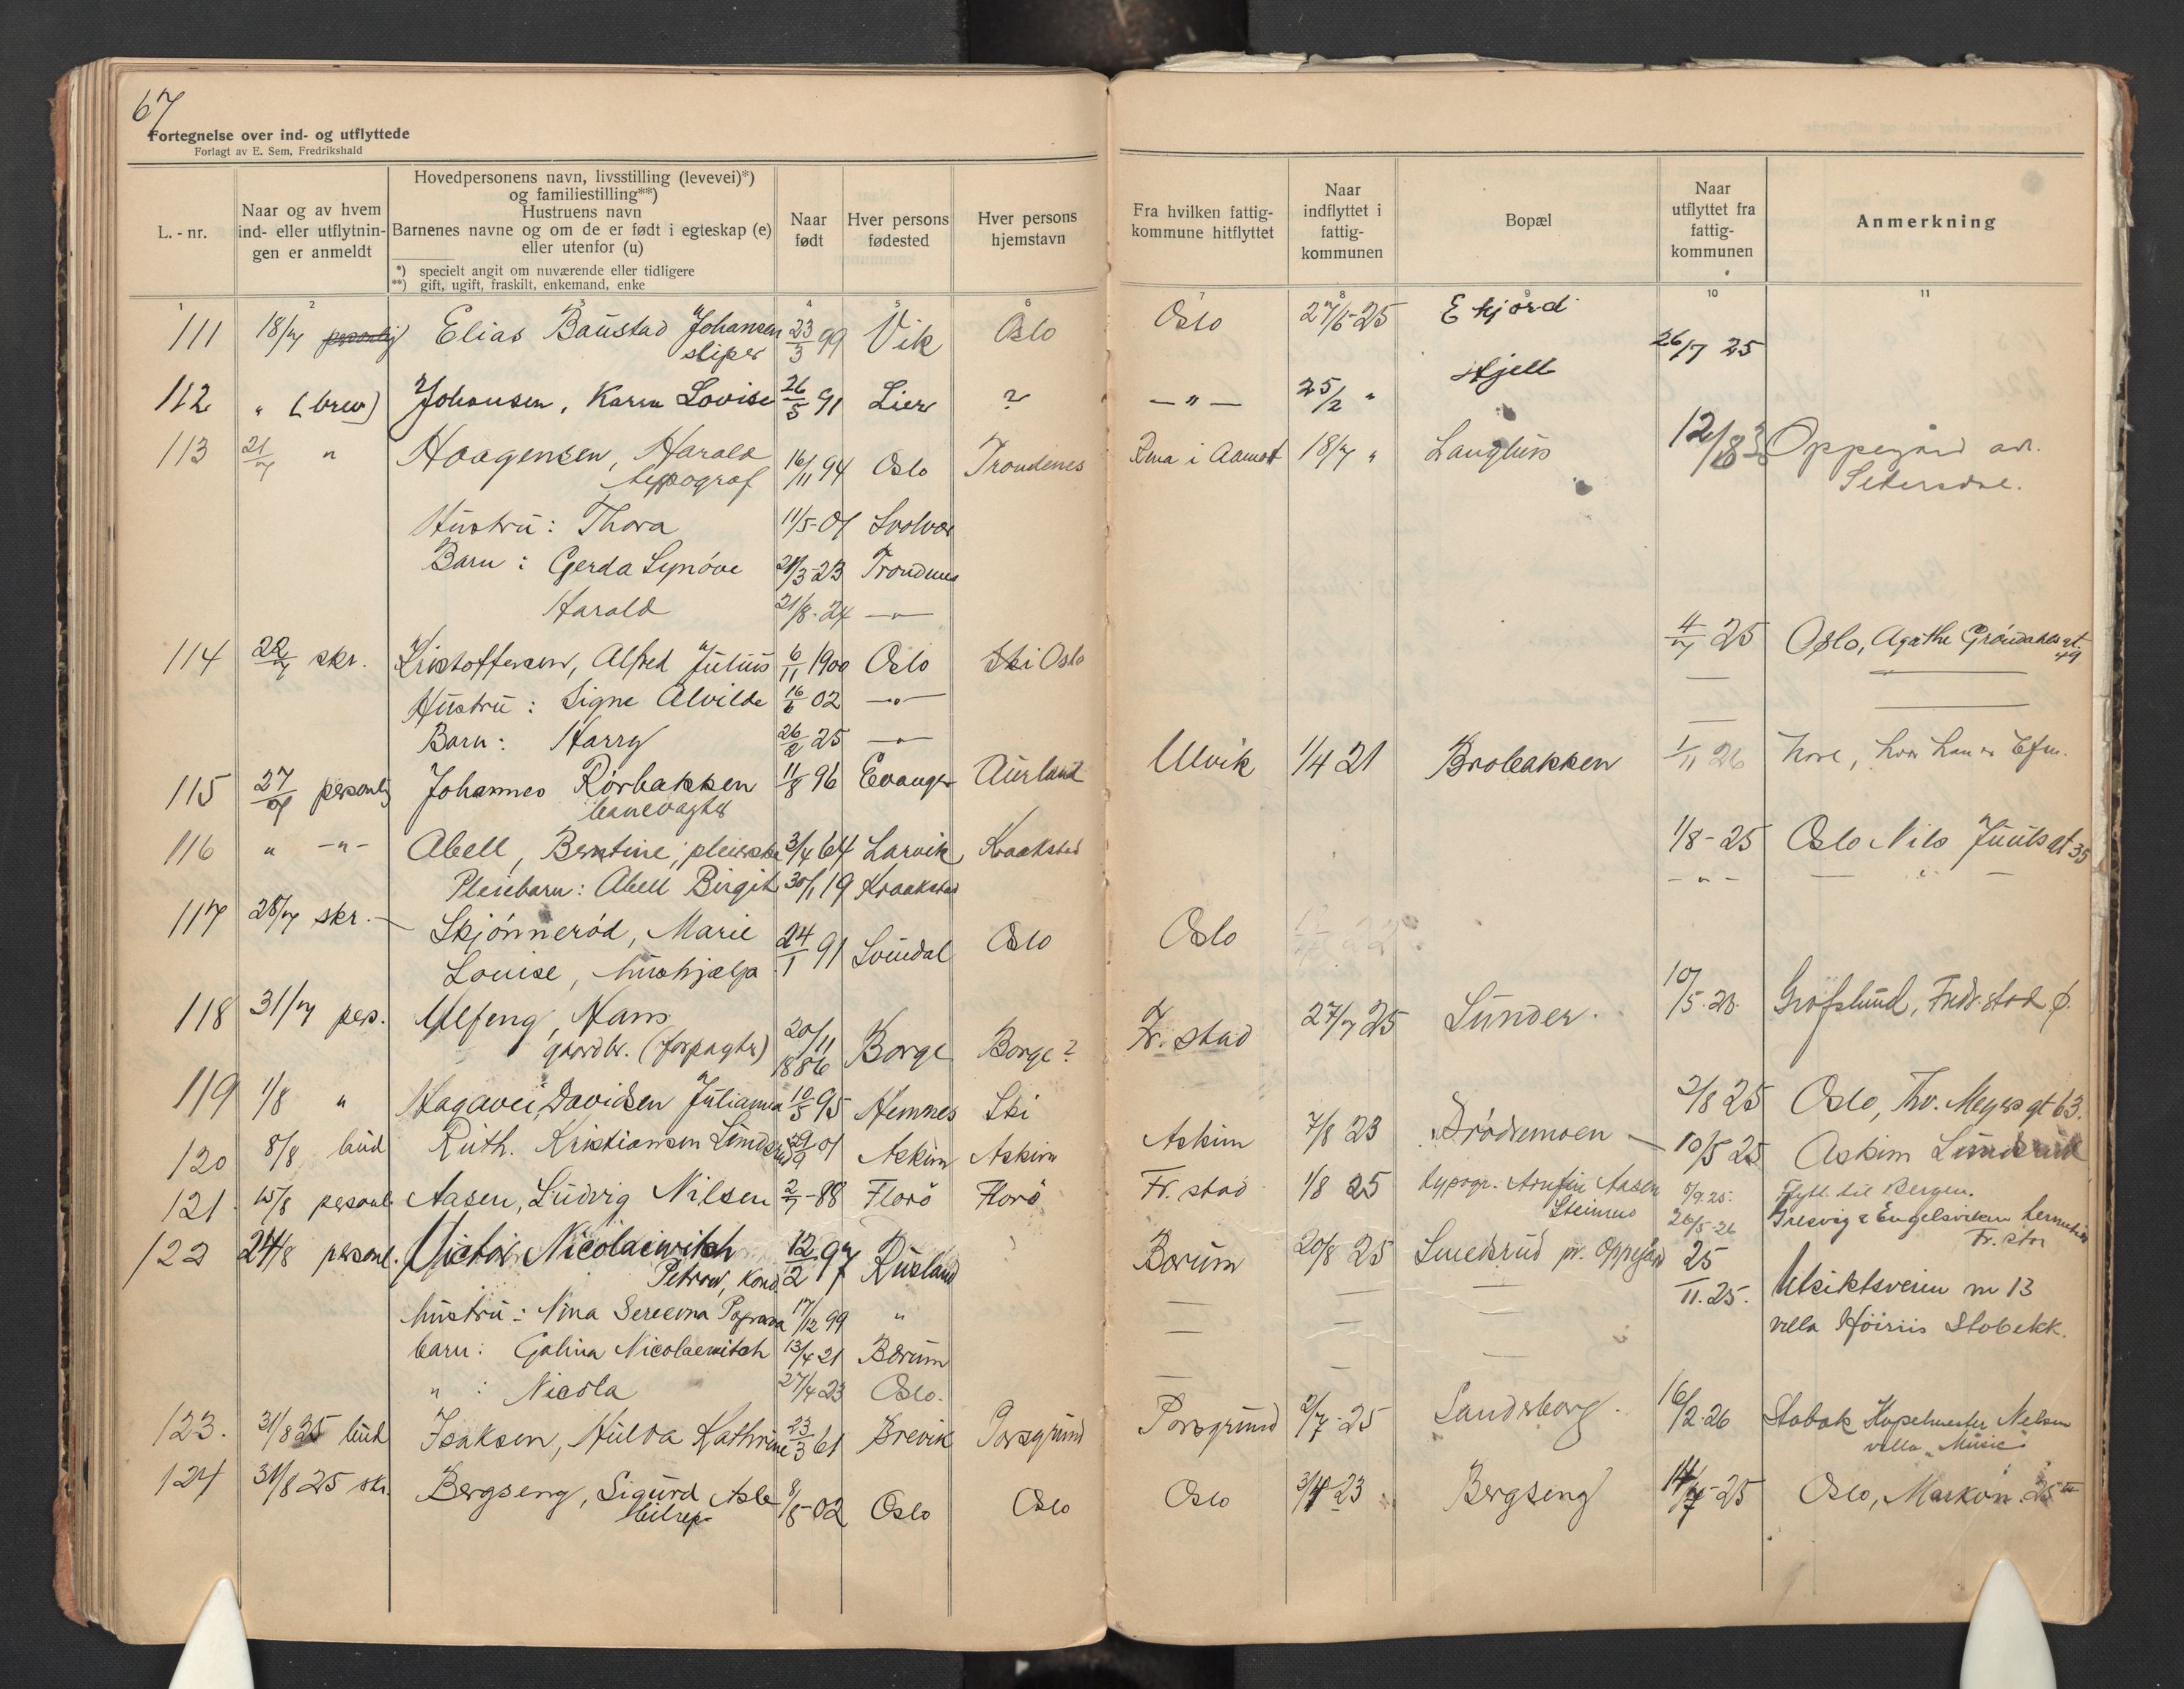 67
Fortegnelse over ind- og utflyttede
Forlagt av E. Sem, Fredrikshald
L.-nr.
Naar og av hvem
ind- eller utflytnin-
gen er anmeldt
Hovedpersonens navn, livsstilling (levevei)*)
og familiestilling**)
Hustruens navn
Barnenes navne og om de er født i egteskap (e)
eller utenfor (u)
*) specielt angit om nuværende eller tidligere
**) gift, ugift, fraskilt, enkemand, enke
Naar
født
Hver persons
fødested
Hver persons
hjemstavn
Fra hvilken fattig-
kommune hitflyttet
Naar
indflyttet i
fattig-
kommunen
Bopæl
Naar
utflyttet fra
fattig-
kommunen
Anmerkning
1 2 3 4 5 6 7 8 9 10 11
111 18/7 personlig Elias Baustad Johansen 23/3 99 Vik Oslo Oslo 27/6-25 Ekjord
sliper
26/7 25
112 " (brev) Johansen, Karen Lovise 26/5 91 Lier ? — " — 25/2 " Hjell
113 21/7 " Haagensen, Harald 16/11 94 Oslo Trondenes Rena i Aamot 18/7 " Langhus 12/8 Oppegård
typograf
Hustru: Thora 11/5-01 Svolvær
Barn: Gerda Synøve 21/3-23 Trondenes
Harald 21/8-24 — " —
114 22/7 skr. Kristoffersen, Alfred Julius 6/11 1900 Oslo Ski Oslo 4/7 25 Oslo, Agathe Grøndahls gt. 49
Hustru: Signe Alvilde 16/6 02 — " — —
Barn: Harry 26/2 25 — " — —
115 27/7 personlig Johannes Rørbakken 11/8 96 Evanger Aurland Ulvik 1/4 21 Brobakken 1/11 26
banevagter
116 " — " — Abell, Berntine, 3/4 64 Larvik Kraakstad 1/8-25 Oslo Nils Juuls gt 35
Pleiebarn: Abell Birgit 30/1 19 Kraakstad — " —
117 28/7 skr. Skjønnerød, Marie 24/1 91 Svindal Oslo Oslo
Louise, hushjelp
118 31/7 pers. Ulfeng, Hans 20/11 1886 Borge Borge? Fr. stad 27/7 25 Sunder. 10/5.26. Grofslund, Fredr.stad
gaardbr. (forpagter)
119 1/8 " Hagavei, Davidsen Julianna 10/5 95 Hemnes Ski 2/8 25 Oslo, Thv. Meyers gt 63.
120 8/8 bud Ruth. Kristiansen 29/9 01 Askim Askim Askim 7/8 23 Drødsemoen — 10/5 25 Askim
121 15/8 personl. Aasen, Ludvig Nilsen 2/7-88 Florö Florö Fr. stad 1/8 25 typogr. Arnfin Aasen 5/9.25. Flytt til Bergen.
Steinmo 26/5-26
122 24/8 personl. Victor Nicolaiwitch 12/2 97 Rusland Bærum 20/8 25 Smedsrud pr. Oppegård 25/11.25. Utsiktsveien nr 13
Petrow, Kond.
hustru: Nina 17/12 99 " — — — villa Höiriis Stabekk.
barn: Galina Nicolaewitch 13/4 21 Bærum — — —
" : Nicola 27/4 23 Oslo. — —
123. 31/8 25 bud Isaksen, Hulda Kathrine 23/3 61 Brevik Porsgrund Porsgrund 2/7-25 Sandsborg. 16/2-26 Stabæk Kapelmester Nelsen
villa "Music"
124 31/8 25 skr. Bergseng, Sigurd Asle 8/8-02 Oslo Oslo Oslo 3/4 23 Bergseng 14/7-25 Oslo, Markvn. 25 III